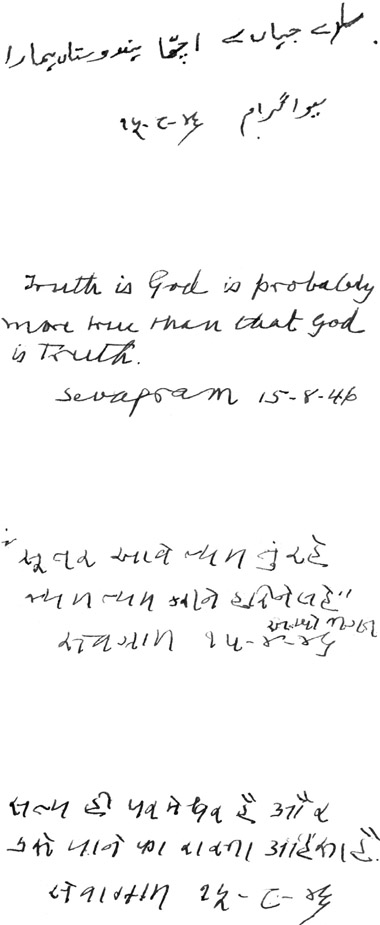 سارے جہاں سے اچھا ہندوستاں ہمارا.
سیواگرام १५-८-४६
Truth is God is probably
more true than that God
is Truth.
Sevagram 15-8-46
"સૂતર આવે ત્યમ તું રહે
જ્યમ ત્યમ કરીને હરિને લહે"
અખો ભગત
સેવાગ્રામ ૧૫-૮-૪૬
सत्य ही परमेश्वर है और
उसे पाने का रास्ता अहिंसा है.
सेवाग्राम १५-८-४६